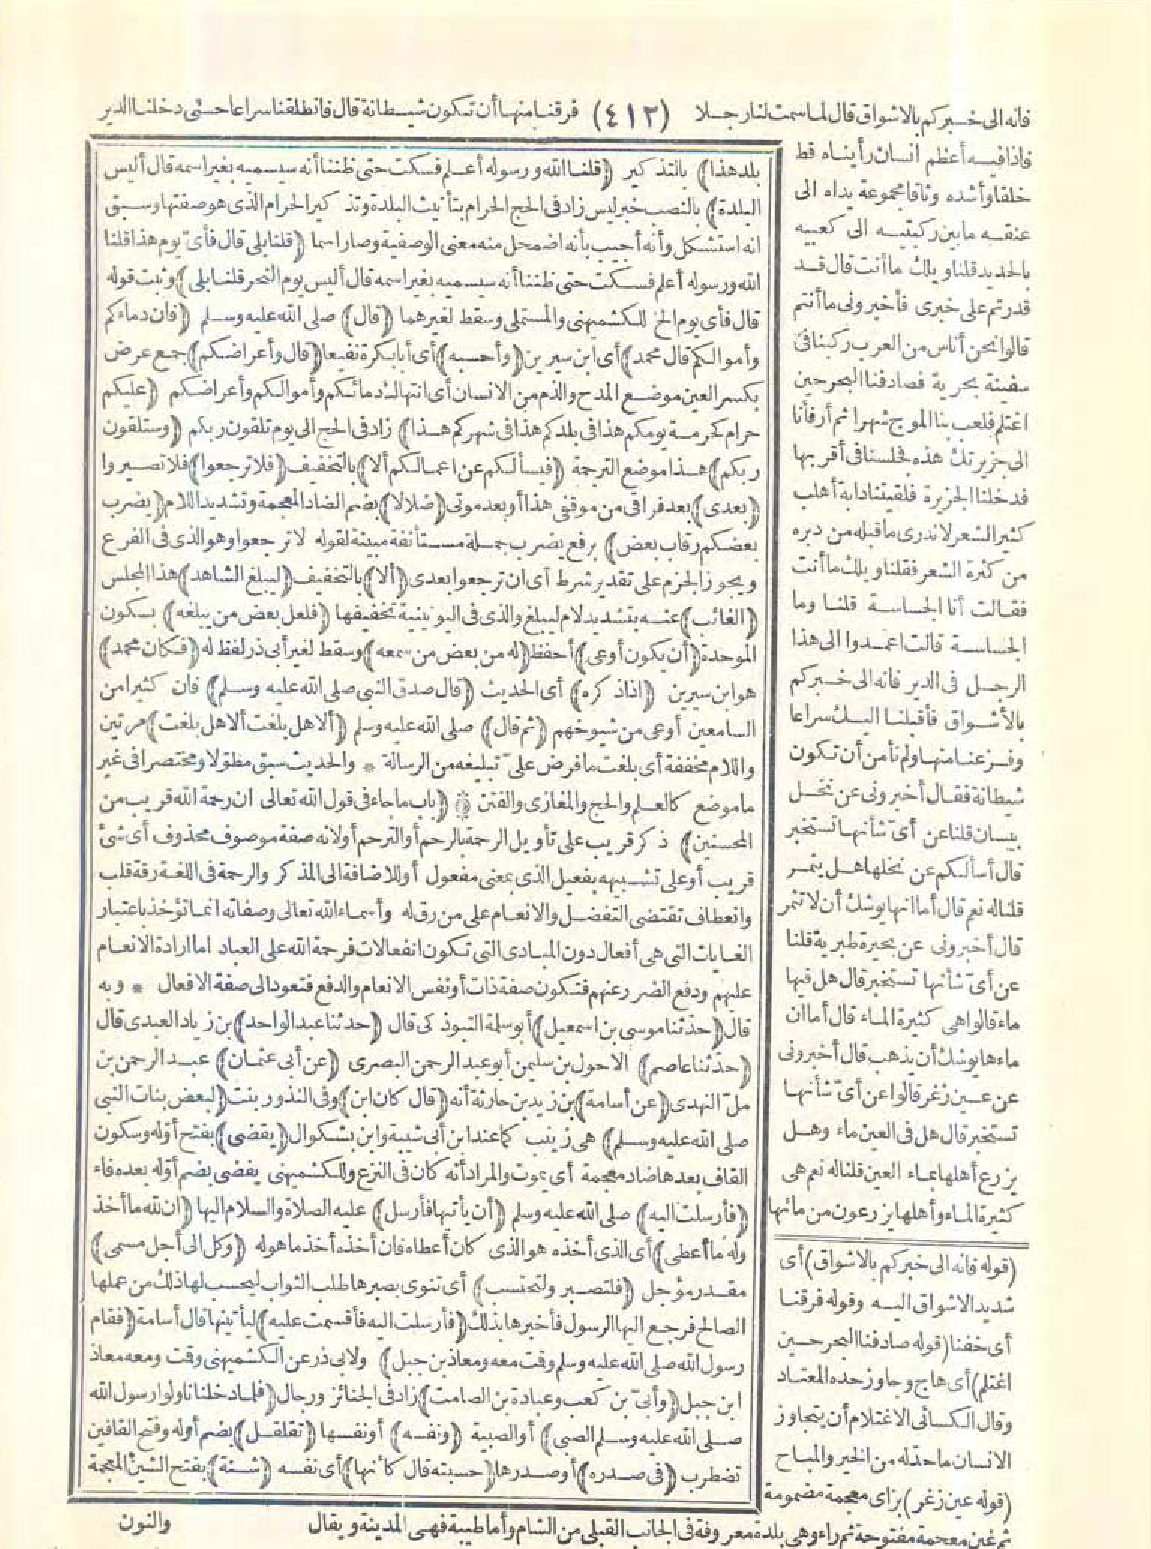 فانه الى خبركم بالاشواق قال لما سمت لنا رجلا (٤١٣) فرقنا منها أن تكون شيطانة قال فانطلقنا سراعا حتى دخلنا الدير
فاذا فيه أعظم انسان رأيناه قط
خلقا وأشده وثاقا مجموعة يداه الى
عنقه ما بين ركبتيه الى كعبيه
بالحديد قلنا ويلك ما أنت قال قد
قدرتم على خبرى فأخبرونى ما أنتم
قالوا نحن أناس من العرب ركبنا فى
سفينة بحرية فصادفنا البحر حين
اغتلم فلعب بنا الموج شهرا ثم أرفأنا
الى جزيرتك هذه فجلسنا فى أقربها
فدخلنا الجزيرة فلقيتنا دابة أهلب
كثير الشعر لا ندرى ما قبله من دبره
من كثرة الشعر فقلنا ويلك ما أنت
فقالت أنا الجساسة قلنا وما
الجساسة قالت اعمدوا الى هذا
الرجل فى الدير فانه الى خبركم
بالأشواق فأقبلنا اليك سراعا
وفزعنا منها ولم نأمن أن تكون
شيطانة فقال أخبرونى عن نخل
بيسان قلنا عن أى شأنها تستخبر
قال أسألكم عن نخلها هل يثمر
قلنا له نعم قال أما انها يوشك أن لا تثمر
قال أخبرونى عن بحيرة طبرية قلنا
عن أى شأنها تستخبر قال هل فيها
ماء قالوا هى كثيرة الماء قال أما ان
ماءها يوشك أن يذهب قال أخبرونى
عن عين زغر قالوا عن أى شأنها
تستخبر قال هل فى العين ماء وهل
يزرع أهلها بماء العين قلنا له نعم هى
كثيرة الماء وأهلها يزرعون من مائها
(قوله فانه الى خبركم بالاشواق) أى
شديد الاشواق اليه وقوله فرقنا
أى خفنا (قوله صادفنا البحر حين
اغتلم) أى هاج وجاوز حده المعتاد
وقال الكسائى الاغتلام أن يتجاوز
الانسان ما حد له من الخير والمباح
(قوله عين زغر) بزاى معجمة مضمومة
ثم غين معجمة مفتوحة ثم راء وهى بلدة معروفة فى الجانب القبلى من الشام وأما طيبة فهى المدينة ويقال والنون
بلد هذا) بالتذكير (قلنا الله ورسوله أعلم فسكت حتى ظننا أنه سيسميه بغير اسمه قال أليس
البلدة) بالنصب خبر ليس زاد فى الحج الحرام بتأنيث البلدة وتذكير الحرام الذى هو صفتها وسبق
انه استشكل وأنه أجيب بأنه اضمحل منه معنى الوصفية وصار اسما (قلنا بلى قال فأى يوم هذا قلنا
الله ورسوله أعلم فسكت حتى ظننا أنه سيسميه بغير اسمه قال أليس يوم النحر قلنا بلى) وثبت قوله
قال فأى يوم الخ للكشميهنى والمستملى وسقط لغيرهما (قال) صلى الله عليه وسلم (فان دماءكم
وأموالكم قال محمد) أى ابن سيرين (وأحسبه) أى أبا بكرة نفيعا (قال وأعراضكم) جمع عرض
بكسر العين موضع المدح والذم من الانسان أى انتهاك دمائكم وأموالكم وأعراضكم (عليكم
حرام كحرمة يومكم هذا فى بلدكم هذا فى شهركم هذا) زاد فى الحج الى يوم تلقون ربكم (وستلقون
ربكم) هذا موضع الترجمة (فيسألكم عن اعمالكم ألا) بالتخفيف (فلا ترجعوا) فلا تصيروا
(بعدى) بعد فراقى من موقفى هذا أو بعد موتى (ضلالا) بضم الضاد المعجمة وتشديد اللام (يضرب
بعضكم رقاب بعض) برفع يضرب جملة مستأنفة مبينة لقوله لا ترجعوا وهو الذى فى الفرع
ويجوز الجزم على تقدير شرط أى ان ترجعوا بعدى (ألا) بالتخفيف (ليبلغ الشاهد) هذا المجلس
(الغائب) عنه بتشديد لام ليبلغ والذى فى اليونينية تخفيفها (فلعل بعض من يبلغه) بسكون
الموحدة (أن يكون أوعى) أحفظ (له من بعض من سمعه) وسقط لغير أبى ذر لفظ له (فكان محمد)
هو ابن سيرين (اذا ذكره) أى الحديث (قال صدق النبى صلى الله عليه وسلم) فان كثيرا من
السامعين أوعى من شيوخهم (ثم قال) صلى الله عليه وسلم (ألا هل بلغت ألا هل بلغت) مرتين
واللام مخففة أى بلغت ما فرض على تبليغه من الرسالة * والحديث سبق مطولا ومختصرا فى غير
ما موضع كالعلم والحج والمغازى والفتن (باب ما جاء فى قول الله تعالى ان رحمة الله قريب من
المحسنين) ذكر قريب على تأويل الرحمة بالرحم أو الترحم أو لانه صفة موصوف محذوف أى شئ
قريب أو على تشبيهه بفعيل الذى بمعنى مفعول أو للاضافة الى المذكر والرحمة فى اللغة رقة قلب
وانعطاف تقتضى التفضل والانعام على من رق له وأسماء الله تعالى وصفاته انما تؤخذ باعتبار
الغايات التى هى أفعال دون المبادى التى تكون انفعالات فرحمة الله على العباد اما ارادة الانعام
عليهم ودفع الضرر عنهم فتكون صفة ذات أو نفس الانعام والدفع فتعود الى صفة الافعال * وبه
قال (حدثنا موسى بن اسمعيل) أبو سلمة التبوذكى قال (حدثنا عبد الواحد) بن زياد العبدى قال
(حدثنا عاصم) الاحول بن سليمن أبو عبد الرحمن البصرى (عن أبى عثمان) عبد الرحمن بن
مل النهدى (عن أسامة) بن زيد بن حارثة أنه (قال كان ابن) وفى النذور بنت (لبعض بنات النبى
صلى الله عليه وسلم) هى زينب كما عند ابن أبى شيبة وابن بشكوال (يقضى) بفتح أوله وسكون
القاف بعدها ضاد معجمة أى يموت والمراد أنه كان فى النزع وللكشميهنى يفضى بضم أوله بعده فاء
(فأرسلت اليه) صلى الله عليه وسلم (أن يأتيها فأرسل) عليه الصلاة والسلام اليها (ان لله ما أخذ
وله ما أعطى) أى الذى أخذه هو الذى كان أعطاه فان أخذه أخذ ما هو له (وكل الى أجل مسمى)
مقدر مؤجل (فلتصبر ولتحتسب) أى تنوى بصبرها طلب الثواب ليحسب لها ذلك من عملها
الصالح فرجع اليها الرسول فأخبرها بذلك (فأرسلت اليه فأقسمت عليه) ليأتينها قال أسامة (فقام
رسول الله صلى الله عليه وسلم وقت معه ومعاذ بن جبل) ولابى ذر عن الكشميهنى وقت ومعه معاذ
ابن جبل (وأبى بن كعب وعبادة بن الصامت) زاد فى الجنائز ورجال (فلما دخلنا ناولوا رسول الله
صلى الله عليه وسلم الصبى) أو الصبية (ونفسه) أو نفسها (تقلقل) بضم أوله وفتح القافين
تضطرب (فى صدره) أو صدرها (حسبته قال كأنها) أى نفسه (شنة) بفتح الشين المعجمة